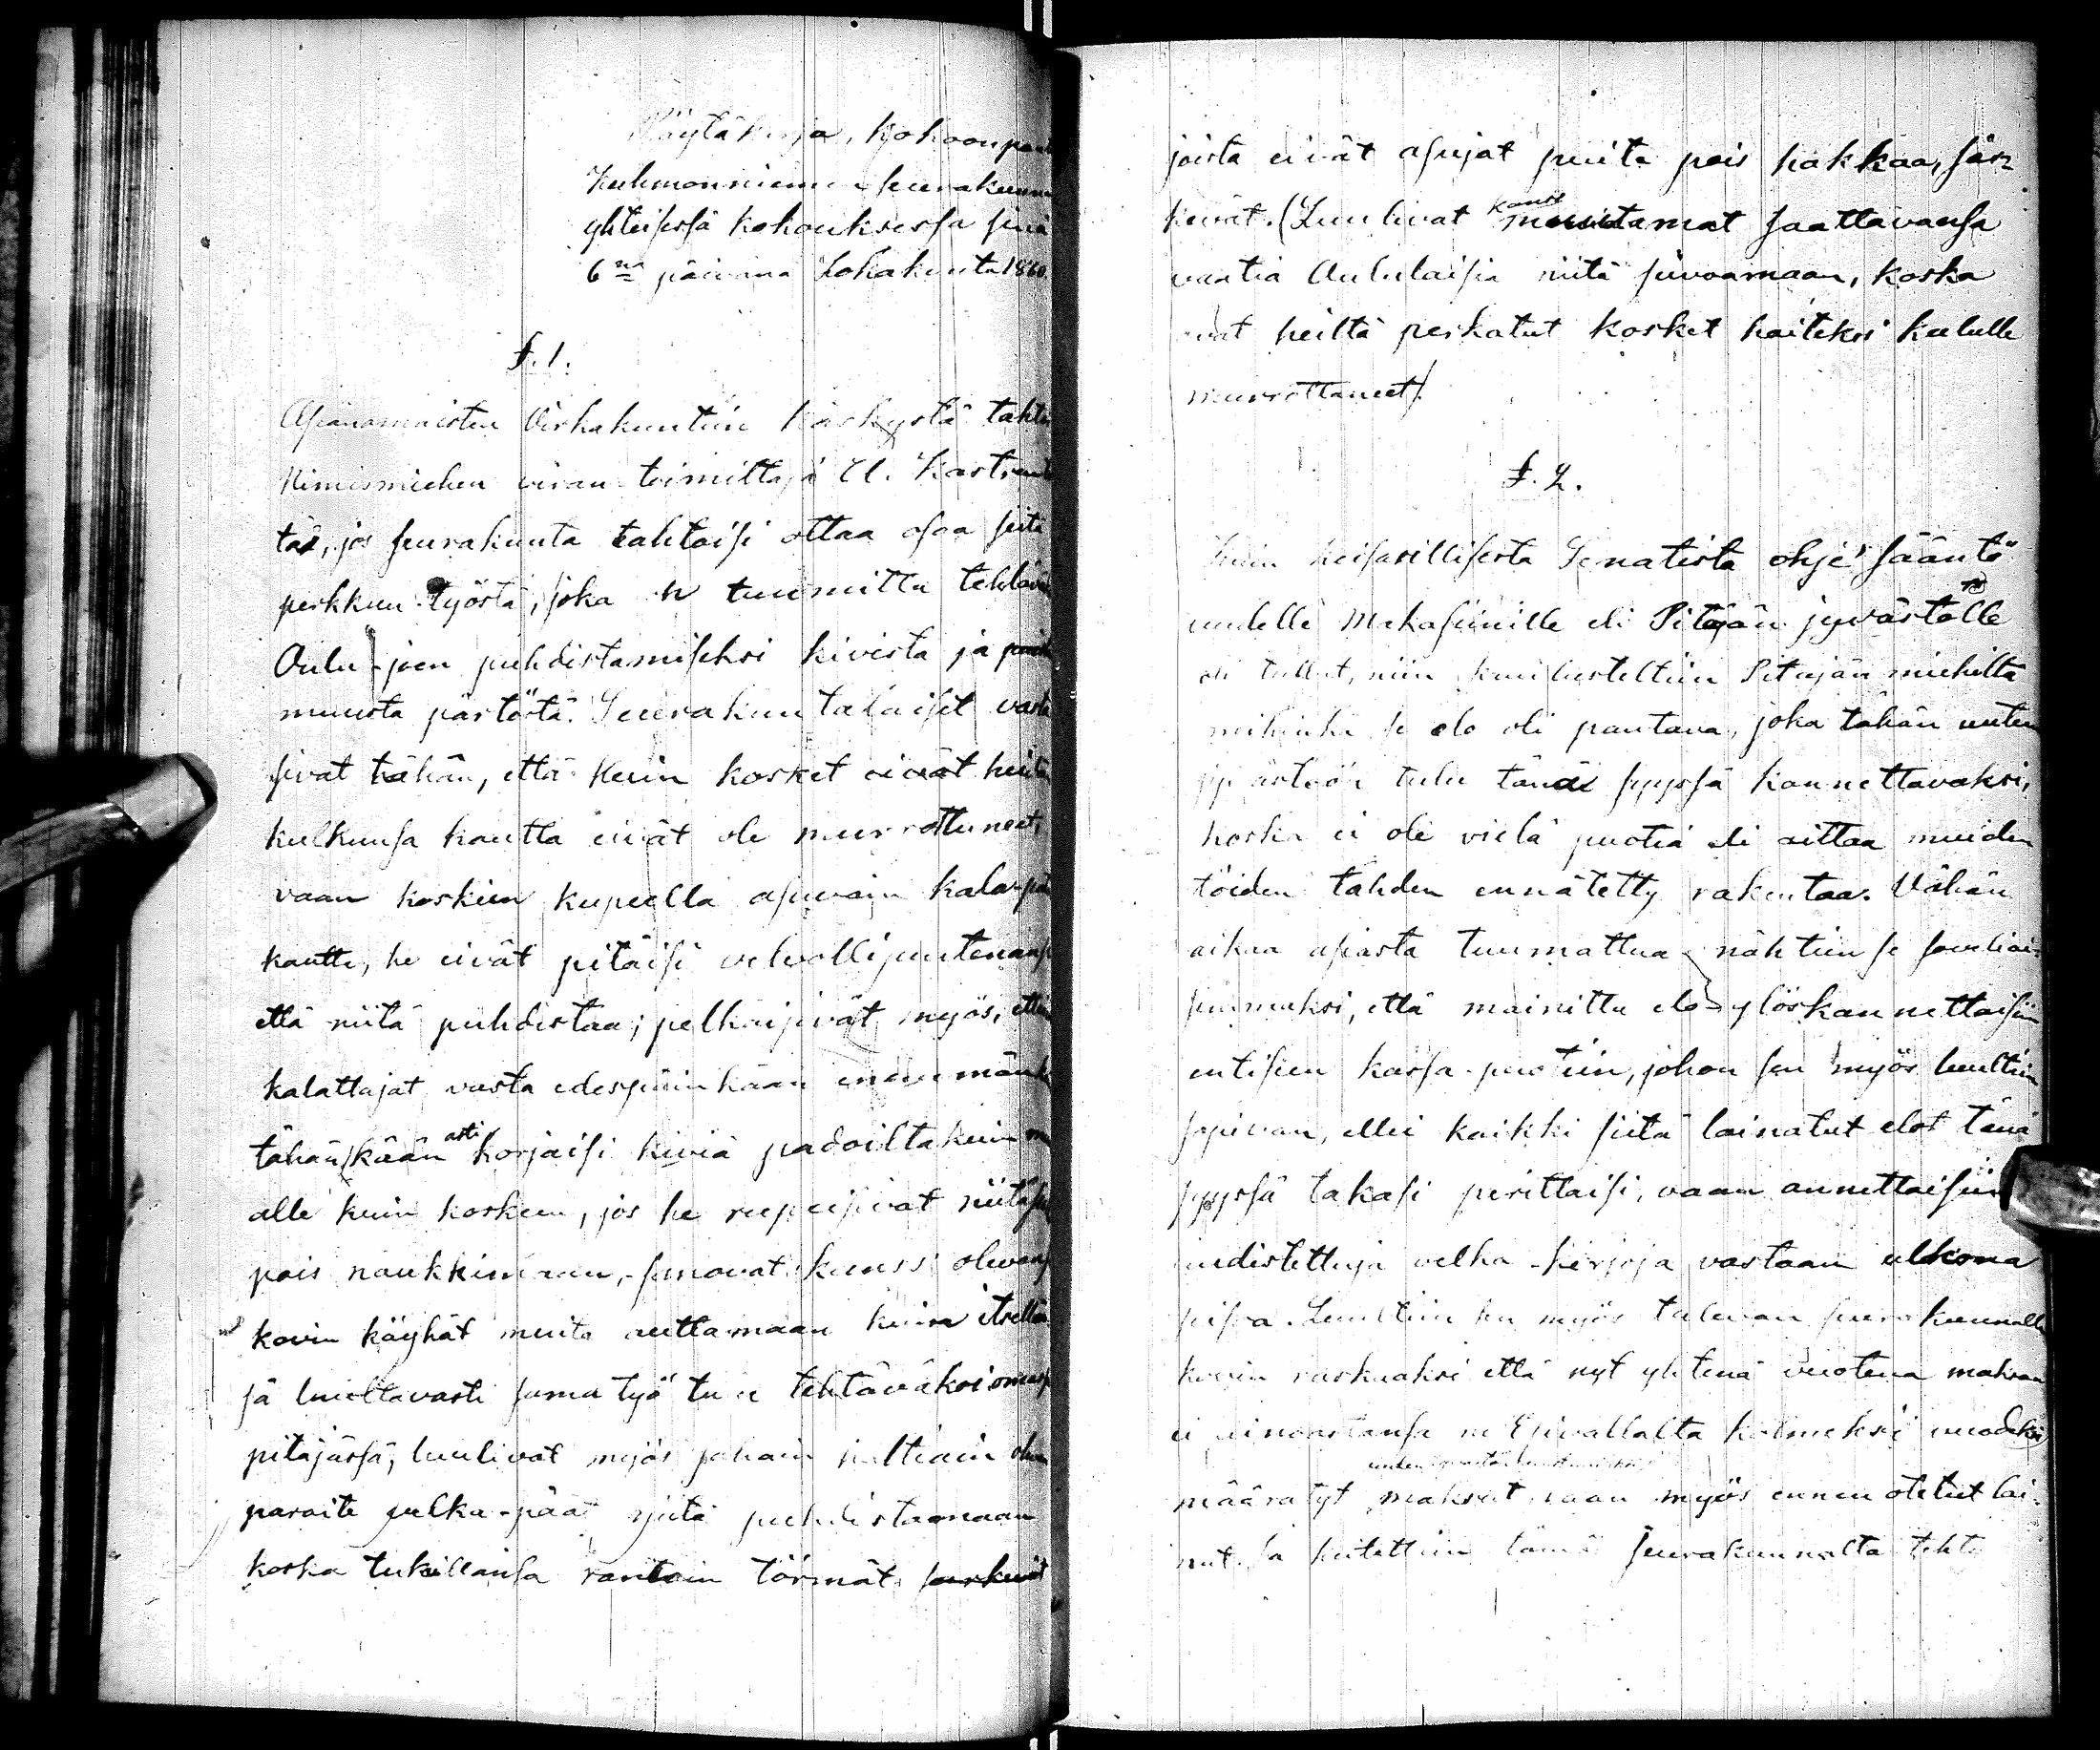 Pöytäkirja, kokoonpan
Kuhmonniemen seurakunnan
yhteisessä kokouksessa sinä
6na päivänä Lokakuuta 1860.
§. 1.
Asianomaisten Virkakuntiin käskystä tahto
Nimismiehen viran toimittaja A. Kastren
tää, jos seurakunta tahtoisi ottaa osaa siitä
perkkuu-työstä, joka on tuumittu tehtävä
Oulu-joen puhdistamiseksi kivistä ja
muusta pärtöstä. Seurakuntalaiset vasta
sivat tähän, että kuin kosket eivät heidän
kulkunsa kautta eivät ole murrottuneet,
vaan koskien kupeella asuvain kala-pa
kautta, he eivät pitäisi velvollisuutenansa
että niitä puhdistaa; pelkäisivät myös, että
kalattajat vasta edespäinkään enemmän
tähän asti kään korjaisi kiviä padoilta kuin
alle kuin kosken, jos he rupeisivat niitä
pois naukkimaan,- sanovat kanss olevans
kovin köyhät muita auttamaan kuin itsellä
sä luultavasti sama työ tulee tehtäväksi omas
pitäjässä; luulivat myös
paraite pulka-pää niitä puhdistamaan
koska tukillansa rantain törmät särkevät
joista eivät asujat puita pois hakkaa, sär-
kevät. (Luulivat kans muutamat saattavansa
vaatia Oululaisia niitä siivoamaan, koska
ovat heiltä perkatut kosket haiteksi kululle
murrottaneet).
§. 2.
Kuin keisarillisesta Senatista ohje sääntö
uudelle Makasiinille eli Pitäjän jyvästölle
oli tullut, niin kuulusteltiin Pitäjän miehiltä
mihinkä se elo oli pantava, joka tähän uuteen
jyvästöön tulee tänä syyssä kannettavaksi,
koska ei ole vielä puotia eli aittaa muiden
töiden tähden ennätetty rakentaa. Vähän
aikaa asiasta tuumattua nähtiin se soveliaim-
simmaksi, että mainittu elo ylöskannettaisiin
entiseen kassa-puotiin, johon sen myös luultiin
sopivan, ellei kaikki siitä lainatut elot tänä
syyssä takasi perittäisi, vaan annettaisiin
uudistettuja velka-kirjoja vastaan ulkona
pysyä. Luultiin sen myös tulevan seurakunnalle
kovin raskaaksi että nyt yhtenä vuotena maksaa
ei ainoastansa Esivallalta kolmeksi vuodeksi
määrätyt maksut vaan myös ennen otetut lai-
nat. Ja kiitettiin tämä seurakunnalta tehty